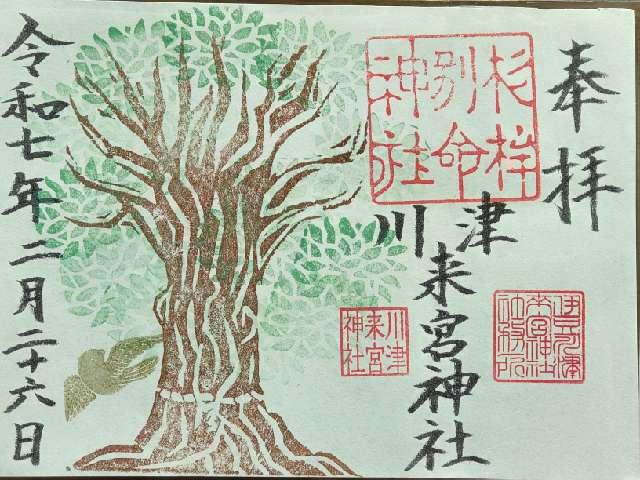 奉拝
杉桙
別命
神社
川津
来宮神社
川津
来宮
神社
令和七年二月二十六日